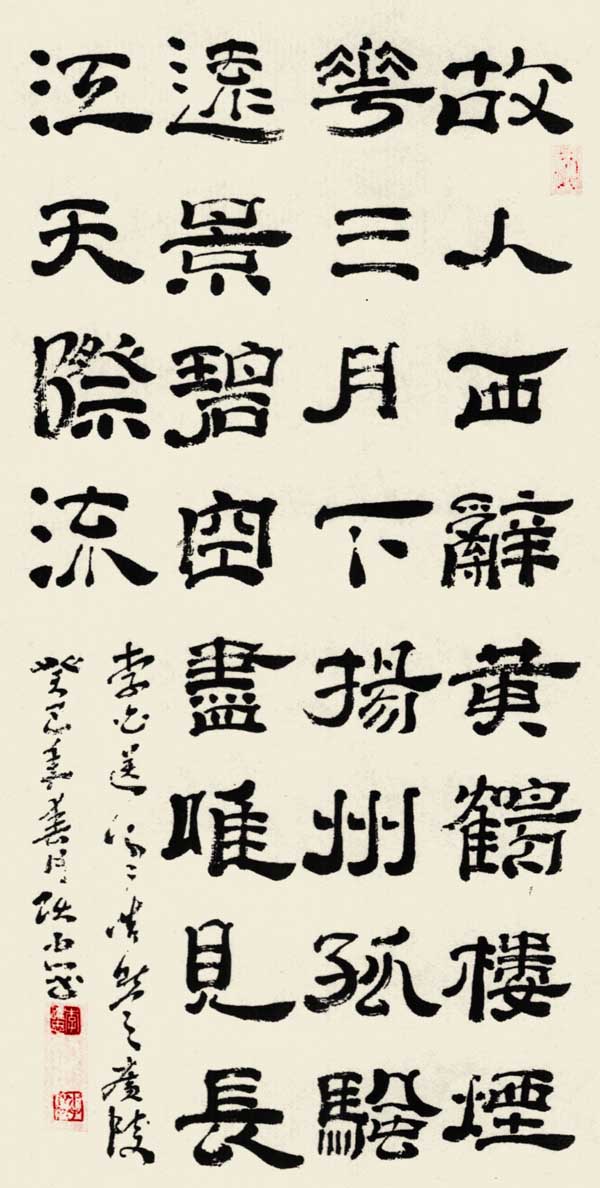 故人西辭黃鶴樓煙
華三月下揚州孤颿
遠景碧空盡唯見長
江天際流
李白送孟浩然之廣陵
癸巳